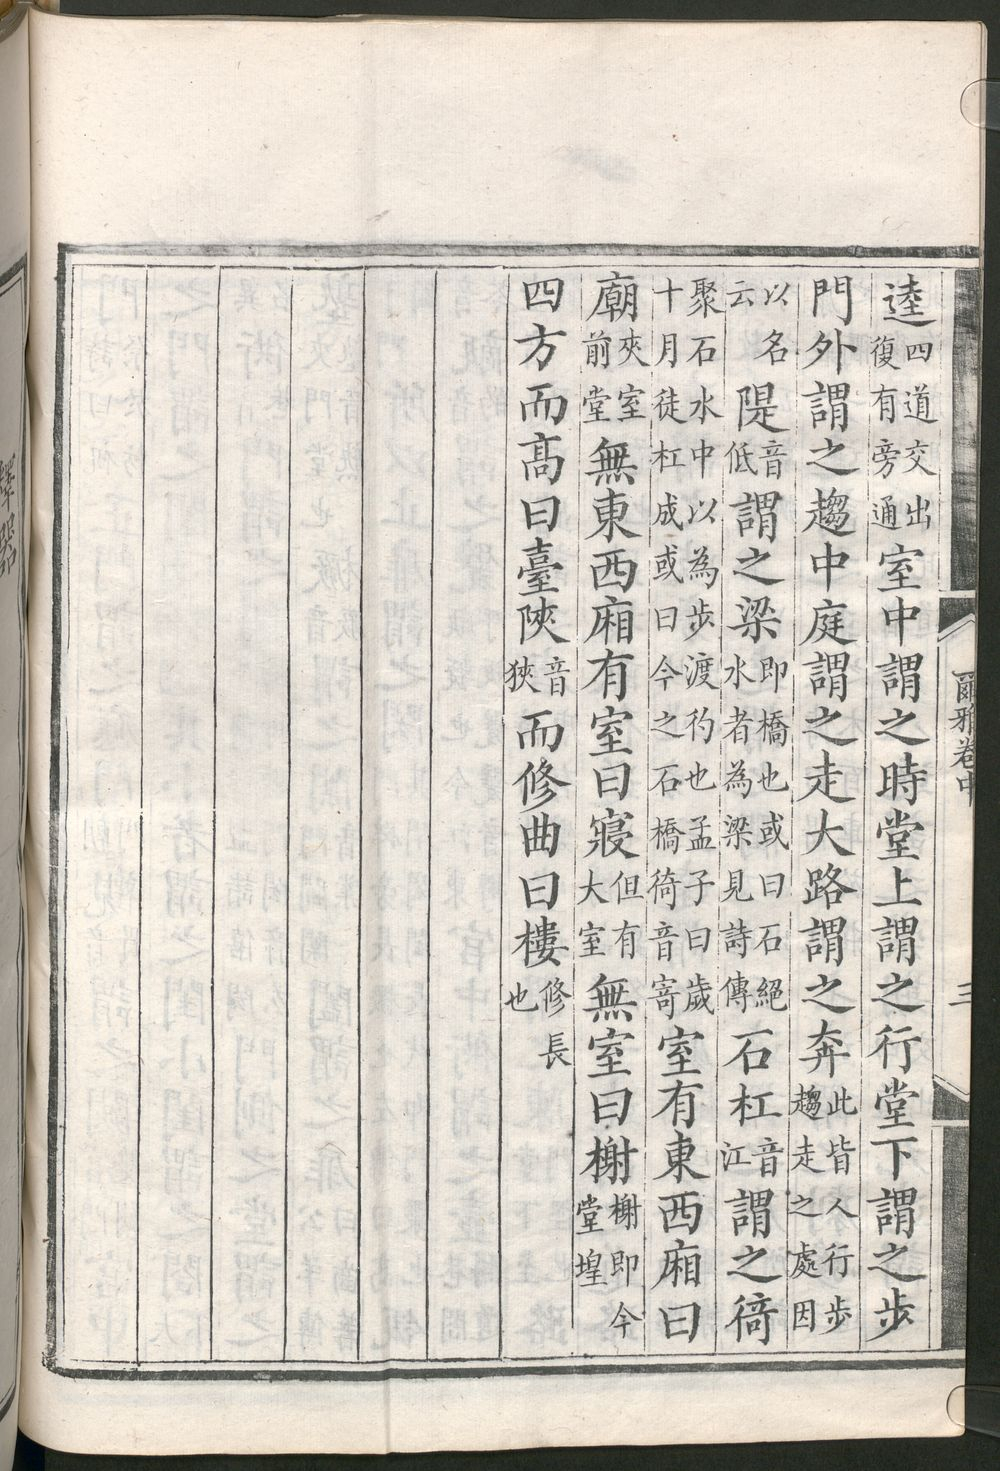 逵四道交出復有旁通室中謂之時堂上謂之行堂下謂之歩
門外謂之趨中庭謂之走大路謂之奔此皆人行歩趨走之處因
以名云隄音低謂之梁即橋也或曰石絕水者為梁見詩傳石杠音江謂之徛
聚石水中以為歩渡彴也孟子曰歲十月徒杠成或曰今之石橋徛音寄室有東西廂曰
廟夾室前堂無東西廂有室曰寢但有大室無室曰榭榭即今堂堭
四方而髙曰臺陜音狹而修曲曰樓修長也
爾雅卷中
三